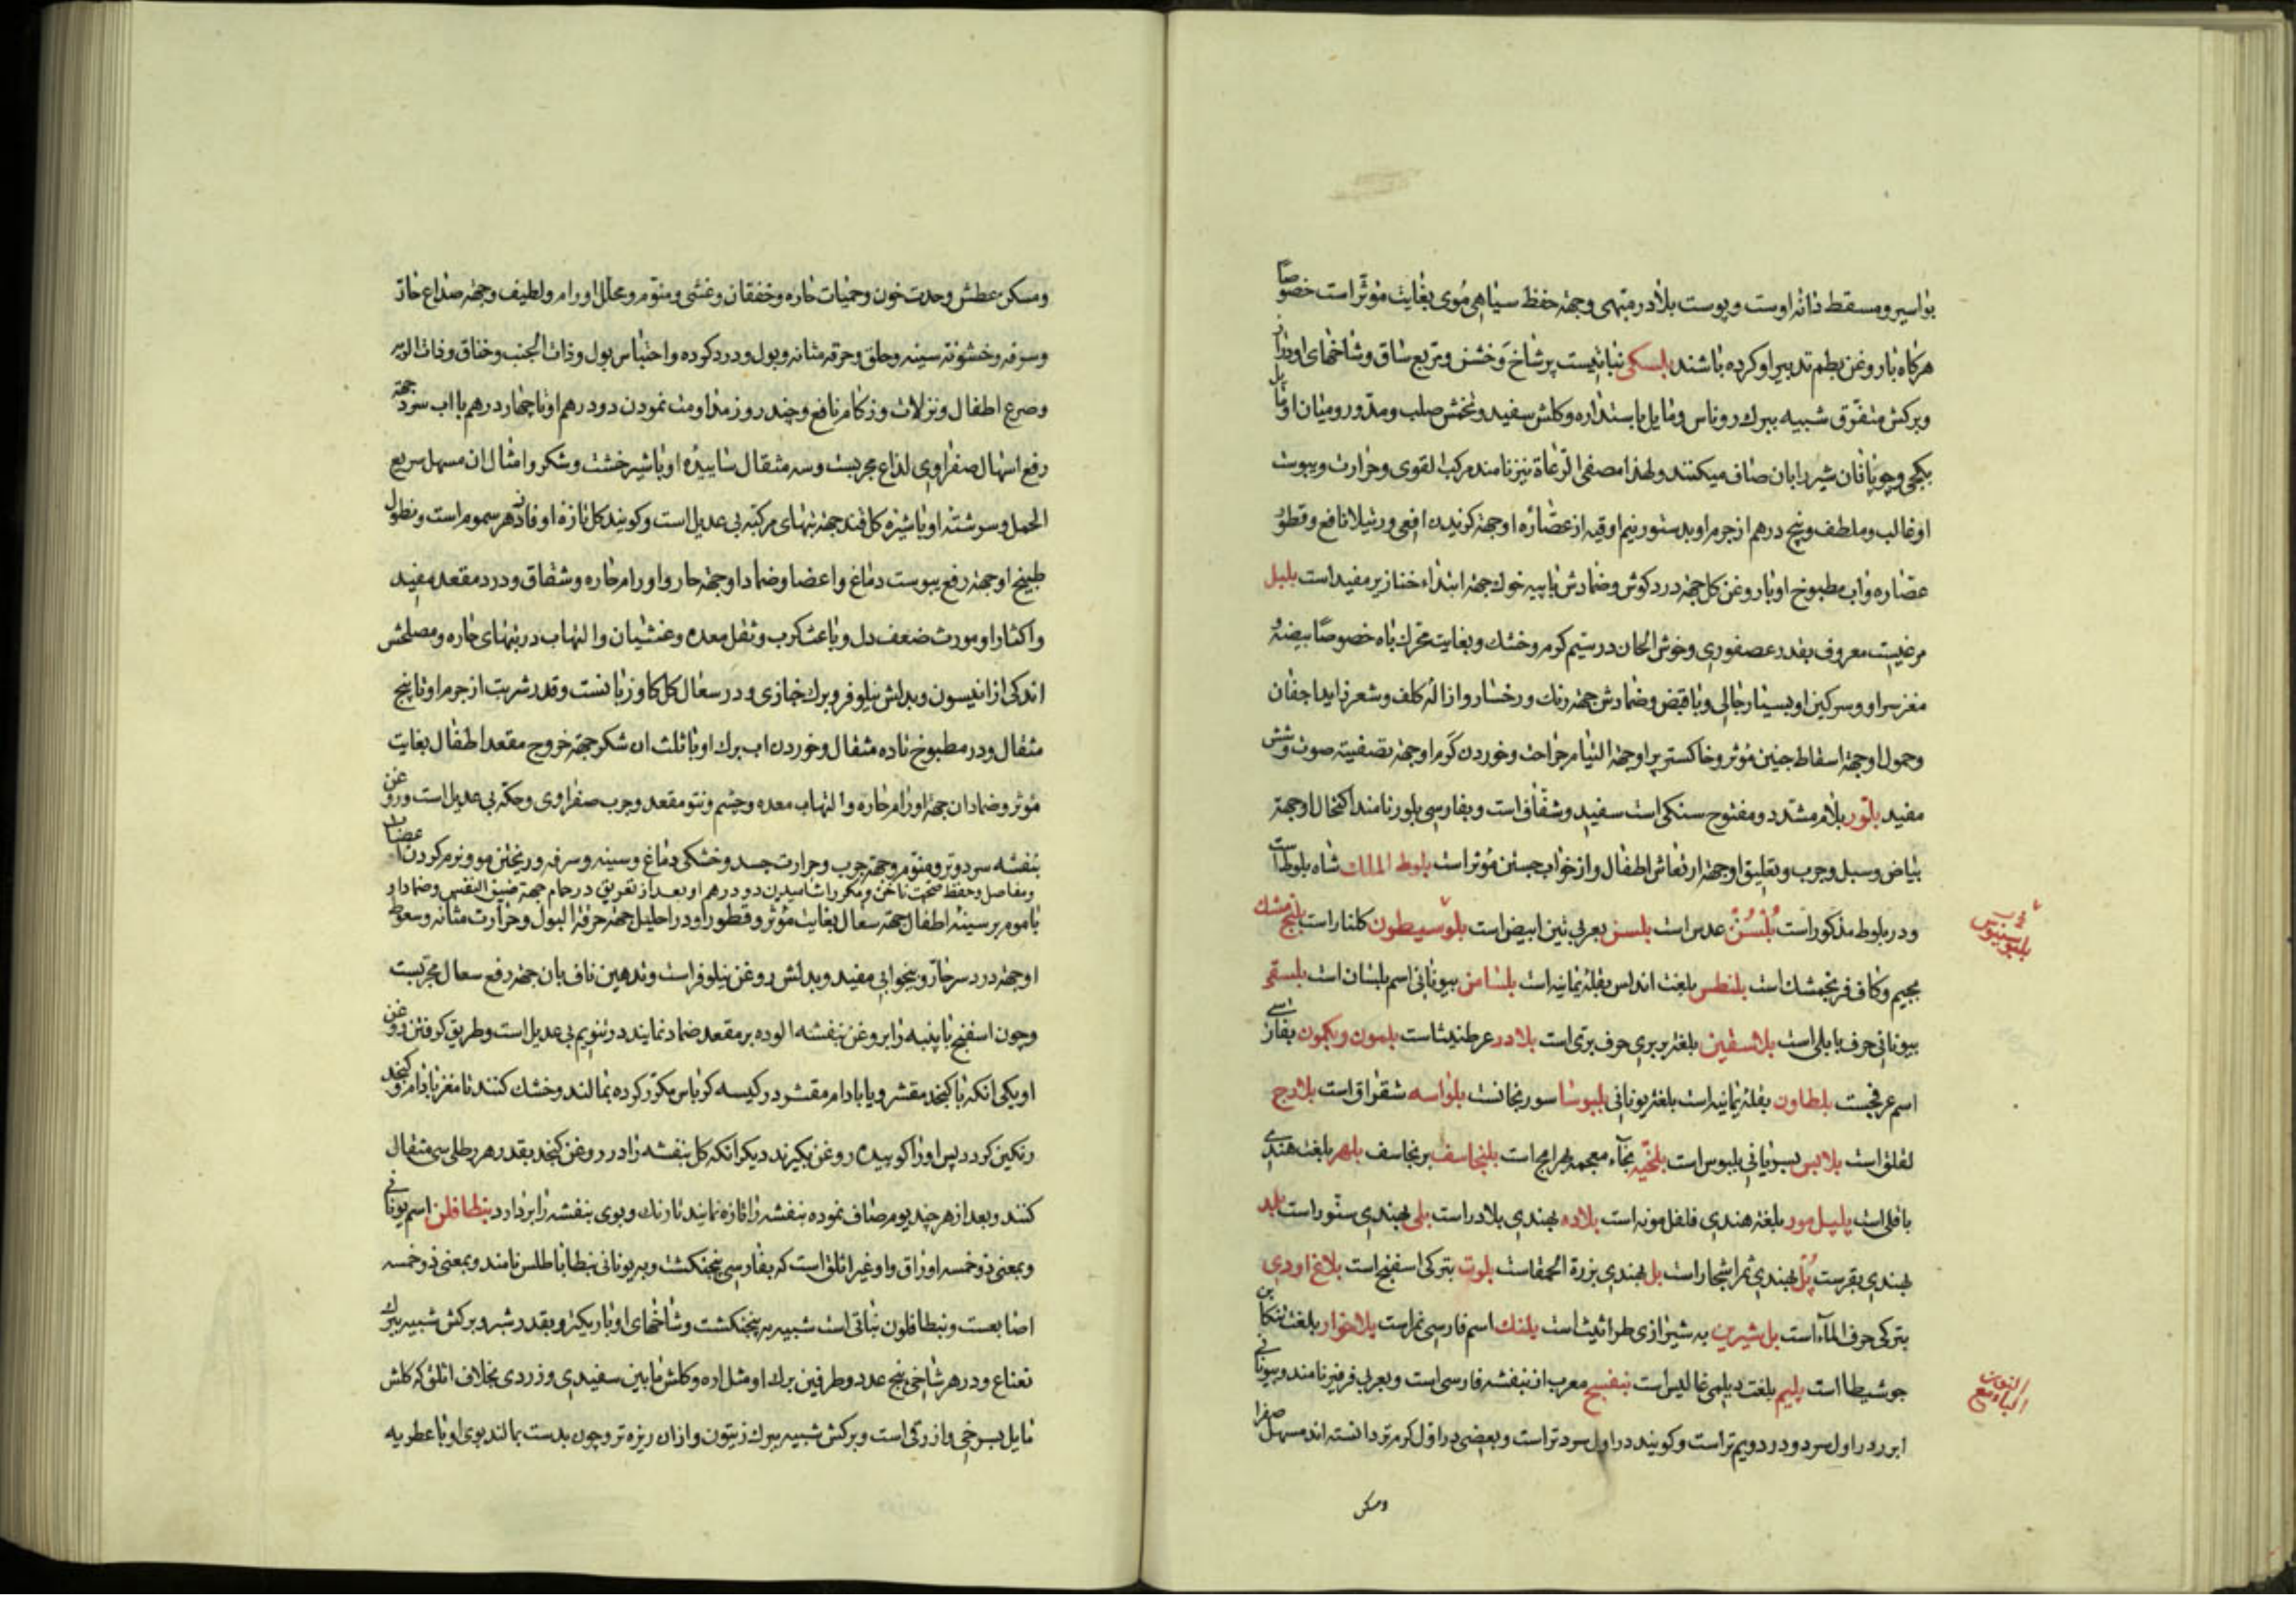 بواسیر و مسقط دانه اوست و پوست بلادر منتهی و جهة حفظ سیاهی موی بغایت مؤثر است خصوصاً
هرکاه با روغن بطم تدبیر او کرده باشند بلسکی نباتیست پر شاخ و خشن و مربع ساق و شاخهای او دراز
و برکش متفرق شبیه ببرک روناس و مایل باستداره و کلش سفید و تخمش صلب و مدور و میان او مایل
بکجی و چوپانان شیر را بان صاف میکنند و لهذا مصفی الرعاة نیز نامند مرکب القوی و حرارت و یبوست
او غالب و ملطف و پنج درهم از جرم او بدستور نیم اوقیه از عصاره او جهة کزیدن افعی و رتیلا نافع و قطور
عصاره و اب مطبوخ او با روغن کل جهة درد کوش و ضمادش با پیه خوک جهة ابتداء خنازیر مفید است بلبل
مرغیست معروف بقدر عصفوری و خوش الحان در سیم کرم و خشک و بغایت محرک باه خصوصاً بیضه و
مغز سر او و سرکین او بسیار جالی و با قبض و ضمادش جهة رنک رخسار و ازاله کلف و شعر زاید اجفان
و حمول او جهة اسقاط جنین مؤثر و خاکستر پر او جهة التیام جراحت و خوردن کرم او جهة تصفیة صوت و شش
مفید بلور بلام مشدد و مفتوح سنکی است سفید و شفاف است و بفارسی بلور نامند اکتحال او جهة
بیاض و سبل و جرب و تعلیق او جهة ارتعاش اطفال و از خواب جستن مؤثر است بلوط الملک شاه بلوط است
و در بلوط مذکور است بُلْسُنْ عدس است بلسن بعربی تین ابیض است بلوسیطون کلنار است بلنج مشک
بجیم و کاف فرنجمشک است بلنطس بلغت اندلس بقله یمانیه است بلسامن بیونانی اسم بلسان است
بیونانی حرف بابلی است بلاسقین بلغة بربری حرف بری است بلادر عرطنیثا است بلسون و بکمون بفارسی
اسم عرفجست بلطاون بقله یمانیه است بلغة یونانی بلبوسا سورنجانست بلواسه شقراق است بلارج
لقلق است بلابس بسریانی بلبوس است بلخیه بخاء معجمه بهرامج است بلنجاسف برنجاسف بلهر بلغت هندی
باقلی است بلیل مور بلغة هندی فلفل مویه است بلاده بهندی بلادر است بلی بهندی سنور است بلد
بهندی بقرست بُل بهندی ثمر اشجار است بل بهندی بزرة الحمقاست بلوت بترکی اسفنج است بلاغ اودی
بترکی حرف الماء است بل شیرین به شیرازی طراثیث است پلنک اسم فارسی نمر است بلاخوار بلغت تنکابن
جوشیطا است پلیم بلغت دیلمی غالیس است بنفسج معرب از بنفشه فارسی است و بعربی فرفیر نامند و بیونانی
ابر در اول سرد و در دویم تر است و کویند در اول سرد تر است و بعضی در اول کرم تر دانسته اند مسهل صفرا
ومسکن
بلبوسیوس
و مسکن عطش و حدت خون و حمیات حاره و خفقان و غشی و منوم و محلل اورام و لطیف و جهة صداع حار
و سرفه و خشونة سینه و حلق و حرقه مثانه و بول و درد کرده و احتباس بول و ذات الجنب و خناق و ذات الریه
و صرع اطفال و نزلات و زکام نافع و چند روز مداومت نمودن دو درهم او تا چهار درهم با اب سرد جهة
رفع اسهال صفراوی لذاع مجربست و سه مثقال ساییده او با شیر خشت و شکر و امثال ان مسهل سریع
الحمل و سرشته او با شیره کافند جهة تبهای مرکبه بی عدیل است و کویند کل تازه او فادزهر سموم است و نطول
طبیخ او جهة رفع یبوست دماغ و اعضا و ضماد او جهة حار و اورام حاره و شقاق و درد مقعد مفید
و اکثار او مورث ضعف دل و باعث کرب و ثقل معده و غثیان و التهاب در تبهای حاره و مصلحش
اندکی از انیسون و بدلش نیلوفر و برک خبازی و در سعال کل کاو زبانست و قدر شربت از جرم او تا پنج
مثقال و در مطبوخ تا ده مثقال و خوردن اب برک او با ثلث ان شکر جهة خروج مقعد اطفال بغایت
مؤثر و ضماد ان جهة اورام حاره و التهاب معده و چشم و نتو مقعد و جرب صفراوی و حکه بی عدیل است و روغن
بنفشه سرد و تر و منوم و جهة جرب و حرارت جسد و خشکی دماغ و سینه و سرفه و ریختن مو و نرم کردن عضلات
و مفاصل و حفظ صحت ناخن و مکرر اشامیدن دو درهم او بعد از تعریق در حمام جهة ضیق النفس و ضماد او
با موم بر سینه اطفال جهة سعال بغایت مؤثر و قطور او در احلیل جهة حرقة البول و حرارت مثانه و سعوط
او جهة درد سر حار و بیخوابی مفید و بدلش روغن نیلوفر است و تدهین ناف بان جهة رفع سعال مجربست
و چون اسفنج یا پنبه را بروغن بنفشه الوده بر مقعد ضماد نمایند در تنویم بی عدیل است و طریق کرفتن روغن
او یکی انکه با کنجد مقشر و یا بادام مقشر در کیسه کرباس مکرر کرده بمالند و خشک کنند تا مغز بادام و کنجد
رنکین کردد پس او را کوبیده روغن بکیرند دیکر انکه کل بنفشه را در روغن کنجد بقدر هر رطلی سی مثقال
کنند و بعد از هر چند یوم صاف نموده بنفشه را تازه نمایند تا رنک و بوی بنفشه را بردارد بنطافلن اسم یونانی
و بمعنی ذو خمسه اوراق و او غیر اثلق است که بفارسی پنجنکشت و به یونانی بنطاباطلس نامند و بمعنی ذو خمسه
اصابعست و بنطافلون نباتی است شبیه به پنجنکشت و شاخهای او باریکتر و بقدر شبر و برکش شبیه ببرک
نعناع و در هر شاخی پنج عدد و طرفین برک او مثل اره و کلش مابین سفیدی و زردی بخلاف اثلق که کلش
مایل بسرخی و ازرقی است و برکش شبیه ببرک زیتون و از ان ریزه تر و چون بدست بمالند بوی او با عطریه